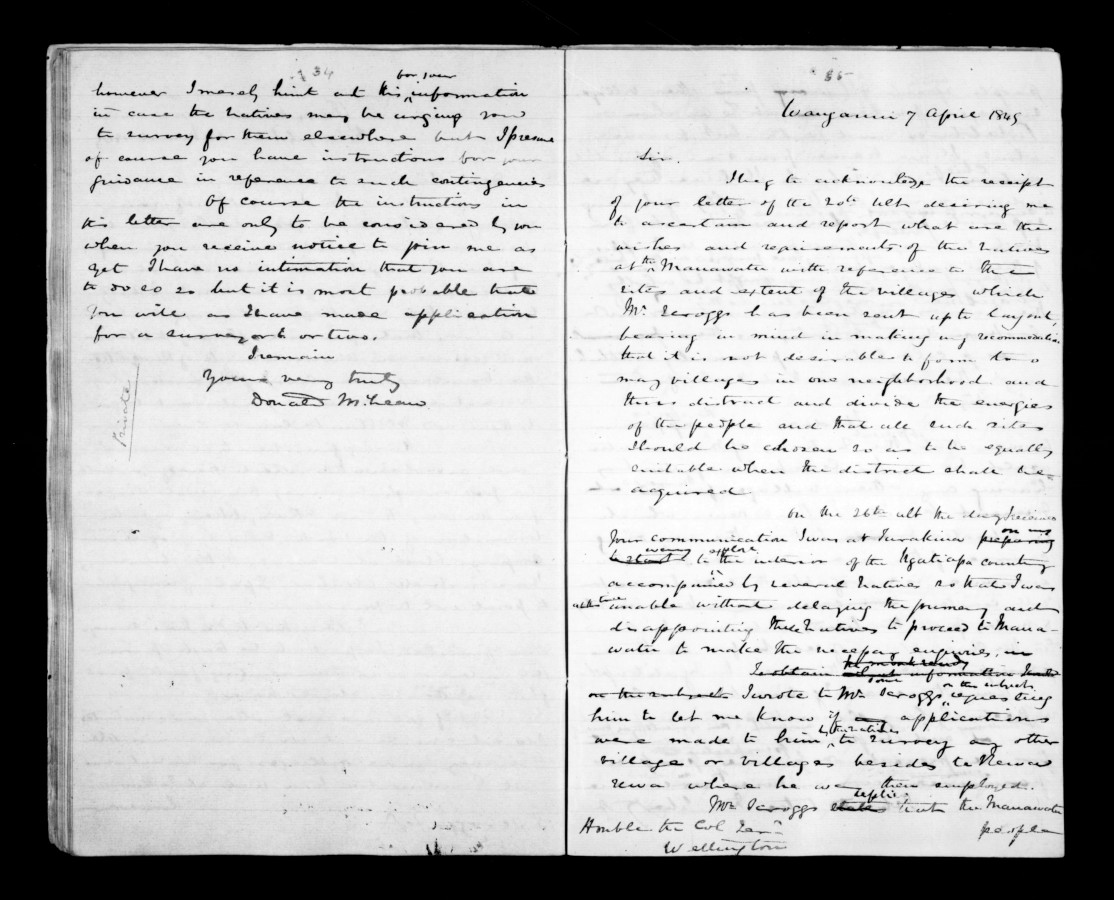 134
for your
however I merely hint at this information
in case the Natives may be urging you
to survey for them elsewhere but I presume
of course you have instructions for your
guidance in reference to such contingencies
Of course the instructions in
this letter are only to be considered by you
when you receive notice to join me as
yet I have no intimation that you are
to do so but it is most probable that
you will as I have made application
for a surveyor or two.
I remain
Yours very truly
Donald McLean
Private
85
Wanganui 7 April 1849
Sir.
I beg to acknowledge the receipt
of your letter of the 20th ult desiring me
to ascertain and report what are the
wishes and requirements of the Natives
at the Manawatu with reference to the
sites and extent of the villages which
Mr. Scroggs has been sent up to layout,
bearing in mind in making my recommendation
that it is not desirable to form too
many villages in one neighborhood and
thus distract and divide the energies
of the people and that all such sites
should be chosen so as to be equally
suitable when the district shall be
acquired
On the 26th ult the day I received
your communication I was at Turakina preparing
on my
to start way to explore the interior of the Ngatiapa country
accompanied by several Natives so that I was
unable without delaying the journey and
disappointing these Natives to proceed to Mana-
watu to make the necessary enquiries, in
To obtain information
on the subject I wrote to Mr. Scroggs on the subject requesting
him to let me know if any applications
were made to him by the natives to survey any other
village or villages besides te Rewa
rewa where he was then employed.
Mr Scroggs states replies that the Manawatu
people
Honble the Col Secy
Wellington